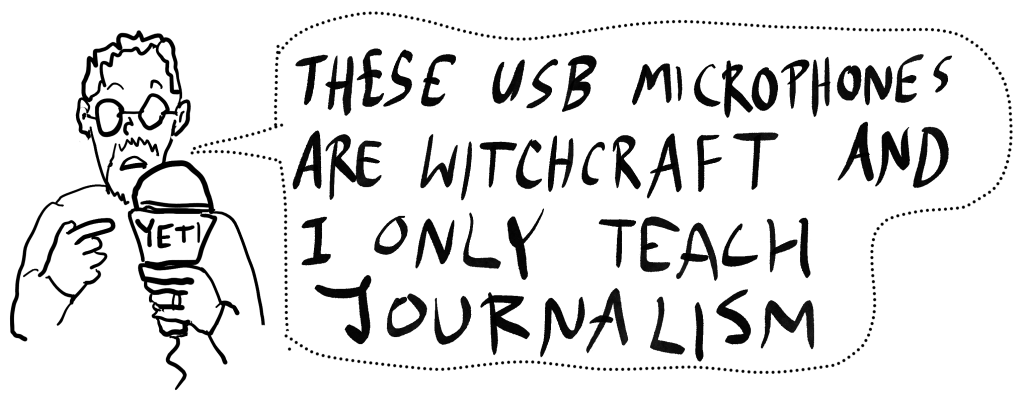 THESE USB MICROPHONES
ARE WITCHCRAFT AND
I ONLY TEACH
JOURNALISM
YETI